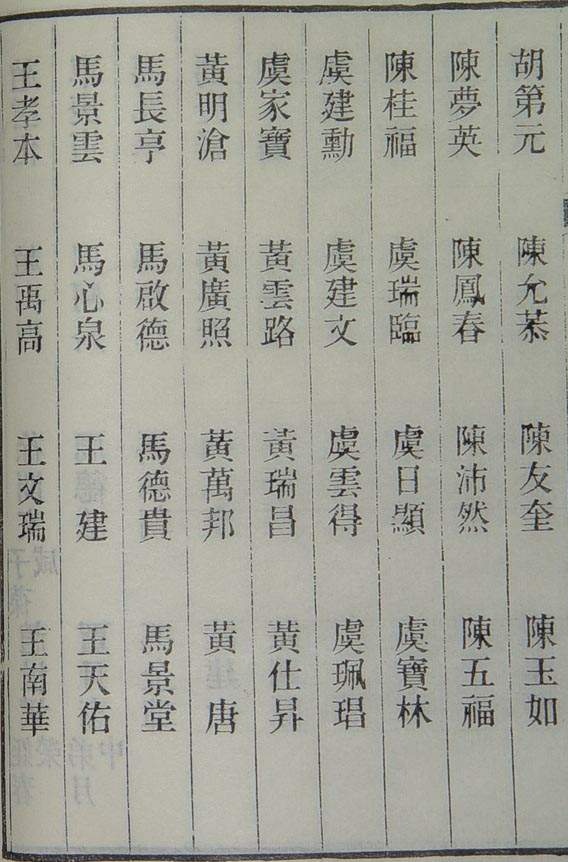 胡第元　陳允恭　陳友奎　陳玉如
陳夢英　陳鳳春　陳沛然　陳五福
陳桂福　虞瑞臨　虞日顯　虞寶林
虞建勳　虞建文　虞雲得　虞珮琩
虞家寶　黃雲路　黃瑞昌　黃仕昇
黃明滄　黃廣照　黃萬邦　黃　唐
馬長亨　馬啟德　馬德貴　馬景堂
馬景雲　馬心泉　王　建　王天佑
王孝本　王禹高　王文瑞　王南華